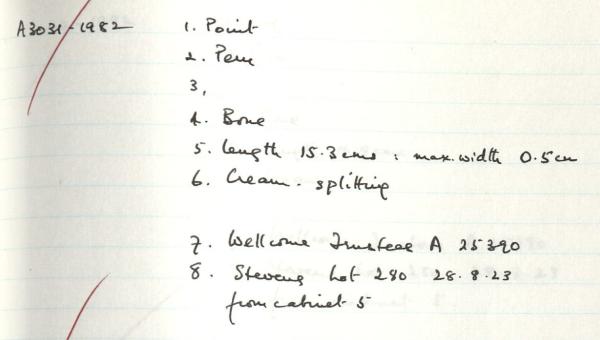 A3031-1982
1. Point
2. Peru
3,
4. Bone
5. length 15.3cms : max.width 0.5cm
6. Cream - splitting
7. Wellcome Trustees A 25390
8. Stevens Lot 280 28.8.23
from cabinet 5